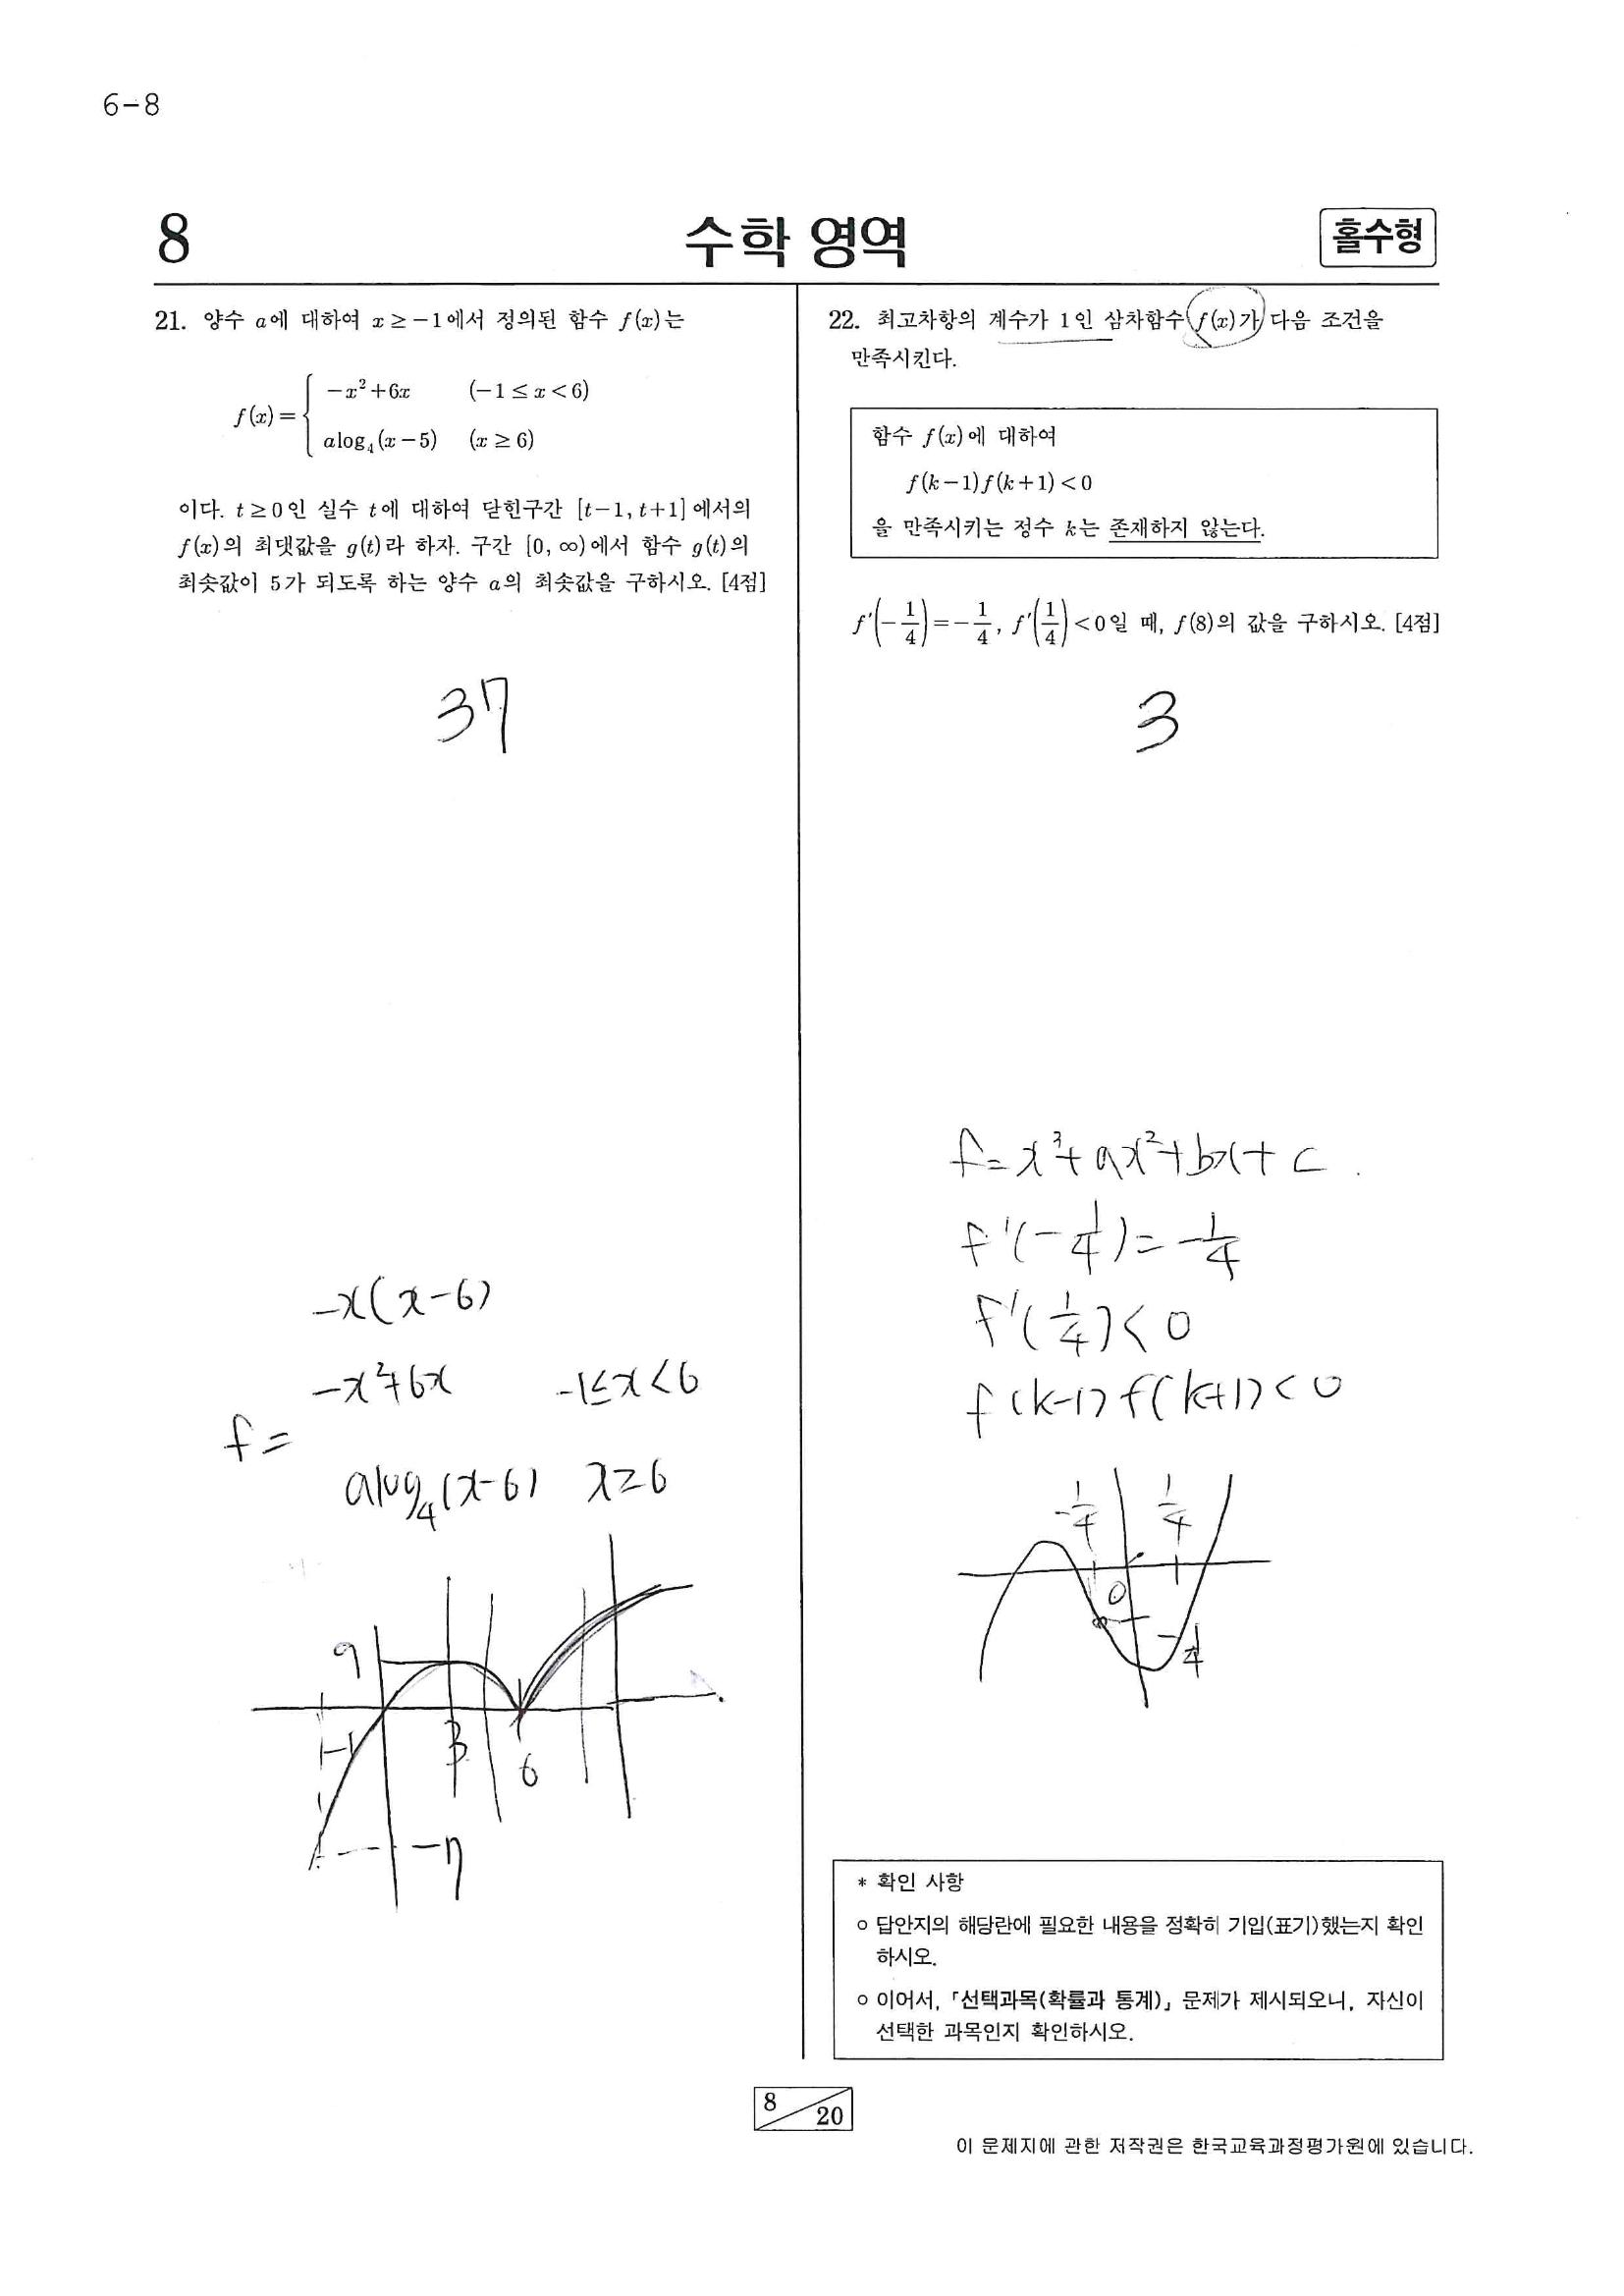 6-8
8
수학 영역
홀수형
21. 양수 a에 대하여 x ≥ -1에서 정의된 함수 f(x)는
-x²+6x (-1 ≤ x < 6)
f(x)=
alog₄(x-5) (x ≥ 6)
이다. t ≥ 0인 실수 t에 대하여 닫힌구간 [t-1, t+1]에서의
f(x)의 최댓값을 g(t)라 하자. 구간 [0, ∞)에서 함수 g(t)의
최솟값이 5가 되도록 하는 양수 a의 최솟값을 구하시오. [4점]
37
-x(x-6)
-x²+6x -1≤x<6
f=
alog₄(x-6) x≥6
9
-1
3
6
-7
22. 최고차항의 계수가 1인 삼차함수 f(x)가 다음 조건을
만족시킨다.
함수 f(x)에 대하여
f(k-1)f(k+1)<0
을 만족시키는 정수 k는 존재하지 않는다.
f'(-1/4)=-1/4, f'(1/4)<0일 때, f(8)의 값을 구하시오. [4점]
3
f=x³+ax²+bx+c.
f'(-1/4)=-1/4
f'(1/4)<0
f(k-1)f(k+1)<0
-1/4 1/4
0
-1/4
* 확인 사항
○ 답안지의 해당란에 필요한 내용을 정확히 기입(표기)했는지 확인
하시오.
○ 이어서, 「선택과목(확률과 통계)」 문제가 제시되오니, 자신이
선택한 과목인지 확인하시오.
8
20
이 문제지에 관한 저작권은 한국교육과정평가원에 있습니다.